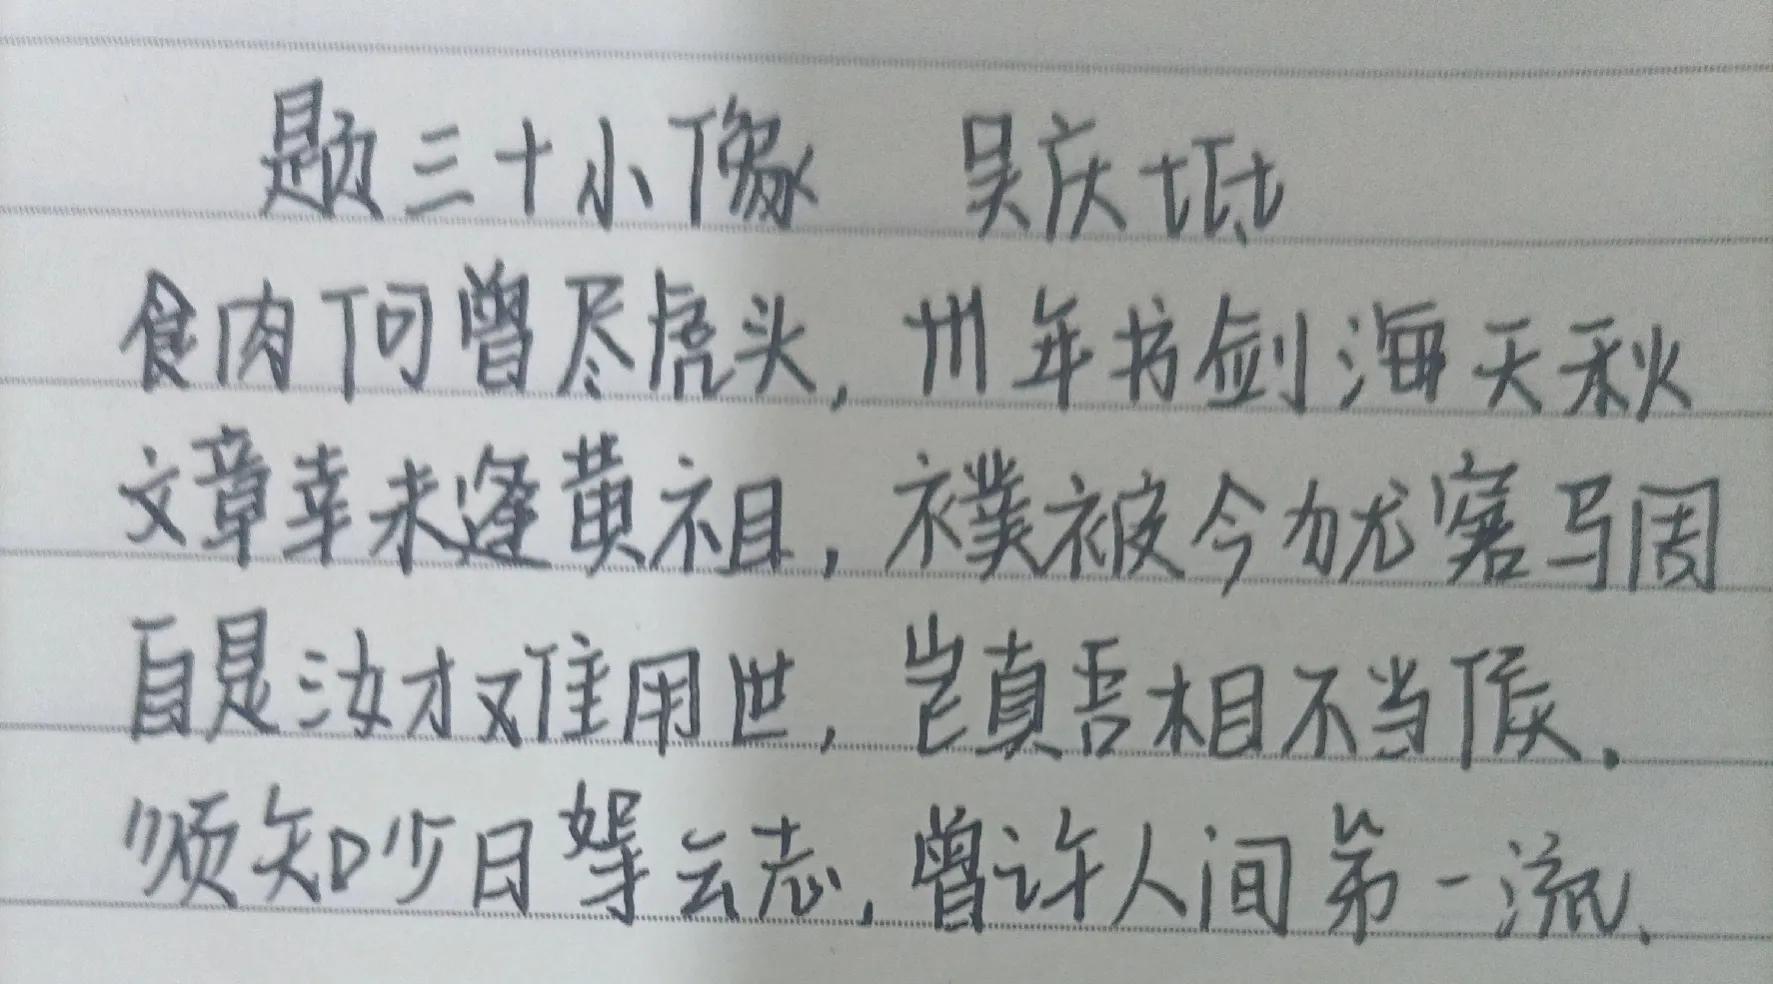 题三十小像 吴庆坻
食肉何曾尽虎头,卅年书剑海天秋
文章幸未逢黄祖,襆被今犹窘马周
自是汝才难用世,岂真吾相不当侯.
须知少日拏云志,曾许人间第一流.